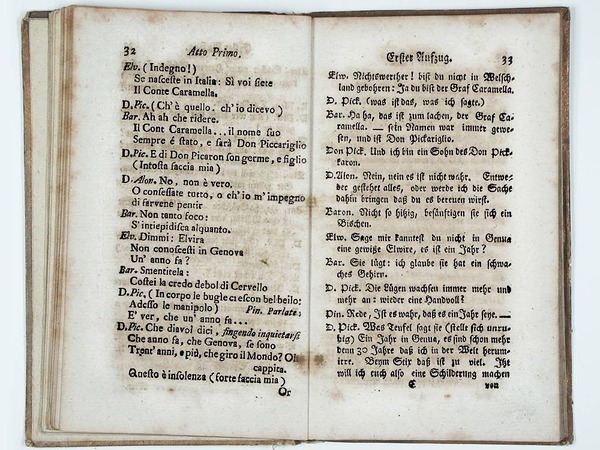 32 Atto Primo.
Elv. (Indegno!)
Se nasceste in Italia: Sì voi siete
Il Conte Caramella.
D. Pic. (Ch'è quello. ch'io dicevo)
Bar. Ah ah che ridere.
Il Cont Caramella... il nome suo
Sempre é stato, e sarà Don Piccariglio
D. Pic. E di Don Picaron son germe, e figlio
(Intosta faccia mia)
D. Alon. No, non è vero.
O confessate tutto, o ch'io m'impegno
di farvene pentir
Bar. Non tanto foco:
S'intiepidisca alquanto.
Elv. Dimmi: Elvira
Non conoscesti in Genova
Un' anno fa?
Bar. Smentitela:
Costei la credo debol di Cervello
D. Pic. (In corpo le bugle ci escon bel beilo:
Adesso le manipolo) Pin. Parlate;
E' ver, che un' anno fa...
D. Pic. Che diavol dici, fingendo inquietarsi
Che anno fa, che Genova, se sono
Trent' anni, e più, che giro il Mondo? Oh
cappita.
Questo è insolenza (forte faccia mia)
Or
Erster Aufzug. 33
Elw. Nichtswerther! bist du nicht in Welsch-
land gebohren: Ja du bist der Graf Caramella.
D. Pick. (was ist das, was ich sagte.)
Bar. Ha ha, das ist zum lachen, der Graf Ca-
ramella. — sein Namen war immer gewe-
sen, und ist Don Pickariglio.
Don Pick. Und ich bin ein Sohn des Don Pick-
karon.
D. Alon. Nein, nein es ist nicht wahr. Entwe-
der gestehet alles, oder werde ich die Sache
dahin bringen daß du es bereuen wirst.
Baron. Nicht so hitzig, besänftigen sie sich ein
Bischen.
Elw. Sage mir kanntest du nicht in Genua
eine gewiße Elwire, es ist ein Jahr?
Bar. Sie lügt: ich glaube sie hat ein schwa-
ches Gehirn.
D. Pick. Die Lügen wachsen immer mehr und
mehr an: wieder eine Handvoll?
Pin. Rede, Ist es wahr, daß es ein Jahr seye. —
D. Pick. Wes Teufel sagt sie (stellt sich unru-
hig) Ein Jahr in Genua, es sind schon mehr
denn 30 Jahre daß ich in der Welt herum-
irre. Beym Stix daß ist zu viel. Itzt
will ich euch also eine Schilderung machen
C von